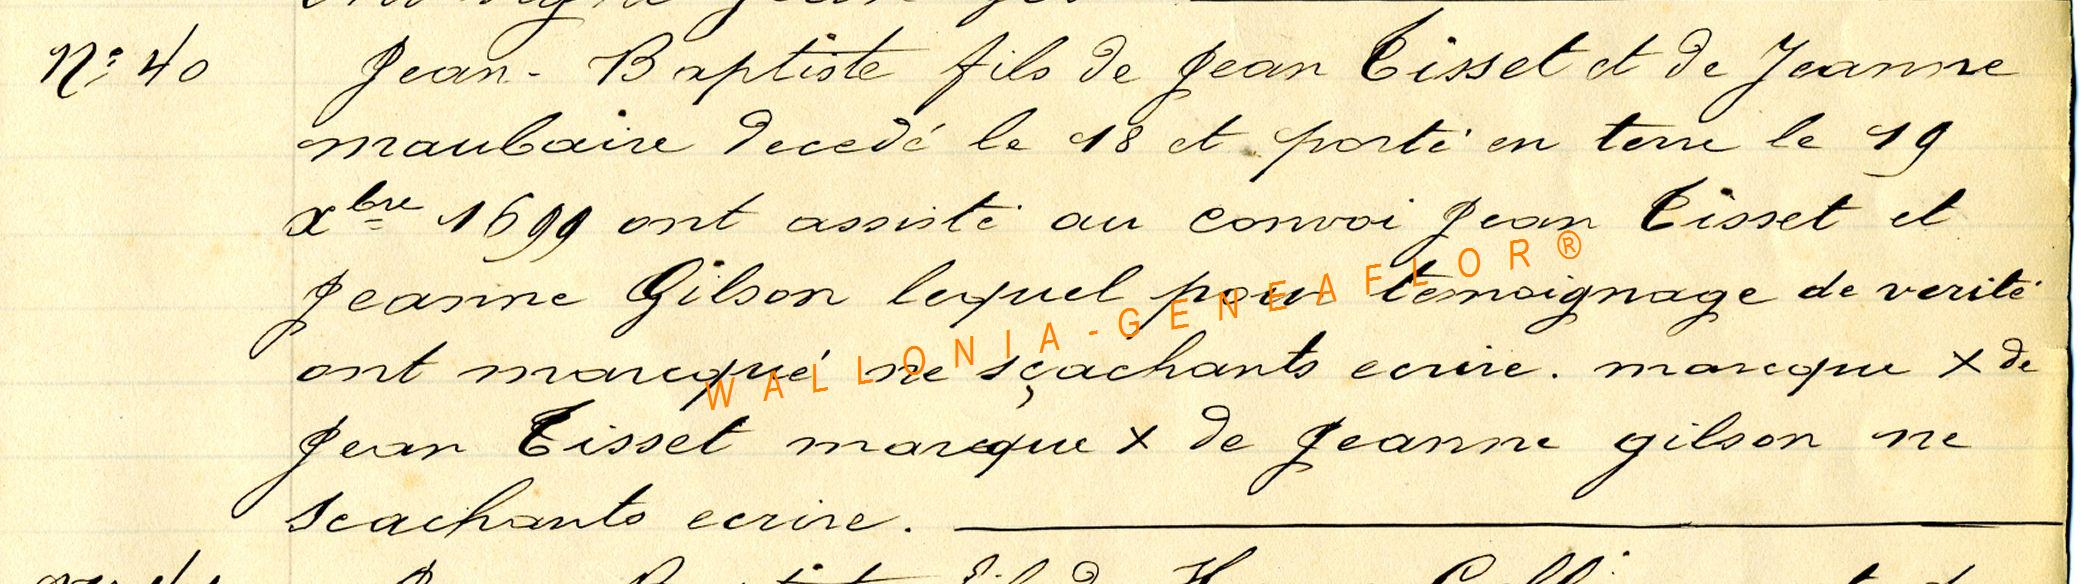 N° 40 Jean-Baptiste fils de Jean Tisset et de Jeanne
maubaire decedé le 18 et porté en terre le 19
xbre 1699 ont assisté au convoi Jean Tisset et
Jeanne Gilson lequel pour temoignage de verité
ont marcqué ne sçachants ecrire. marcque x de
Jean Tisset marcque x de Jeanne gilson ne
scachants ecrire.
WALLONIA-GENEAFLOR®